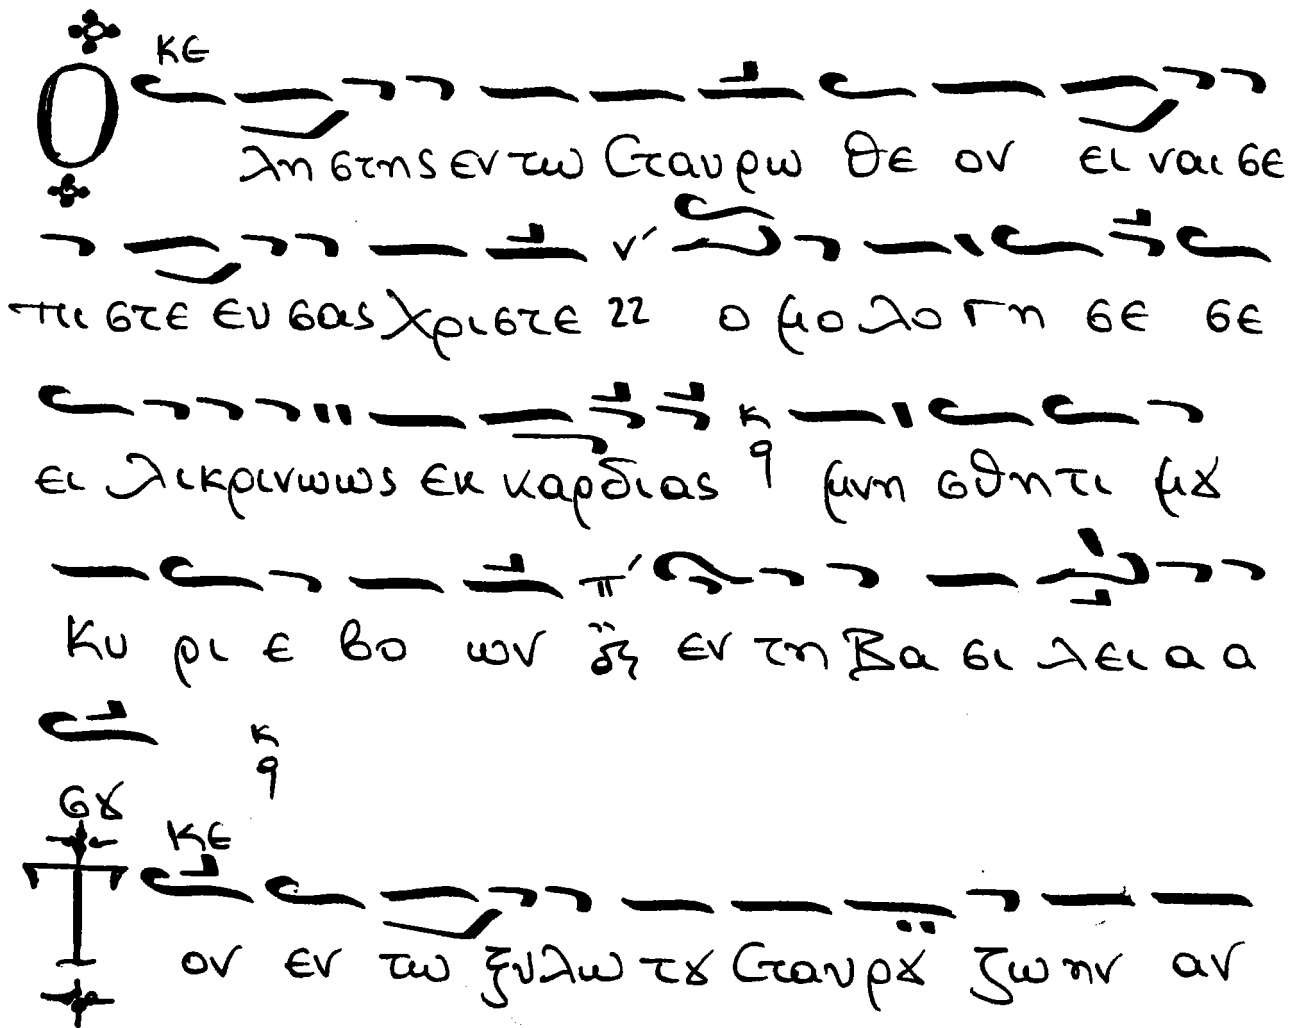 κε
Ο λη στης εν τω Σταυρω θε ον ει ναι σε
πι στε ευ σας Χριστε 22 ο μο λο γη σε σε
ει λικρινωως εκ καρδιας μνη σθητι μȣ
Κυ ρι ε βο ων δς εν τη Βα σι λει α α
σȣ
κε
Τ ον εν τω ξυλω τȣ Σταυρȣ ζω ην αν